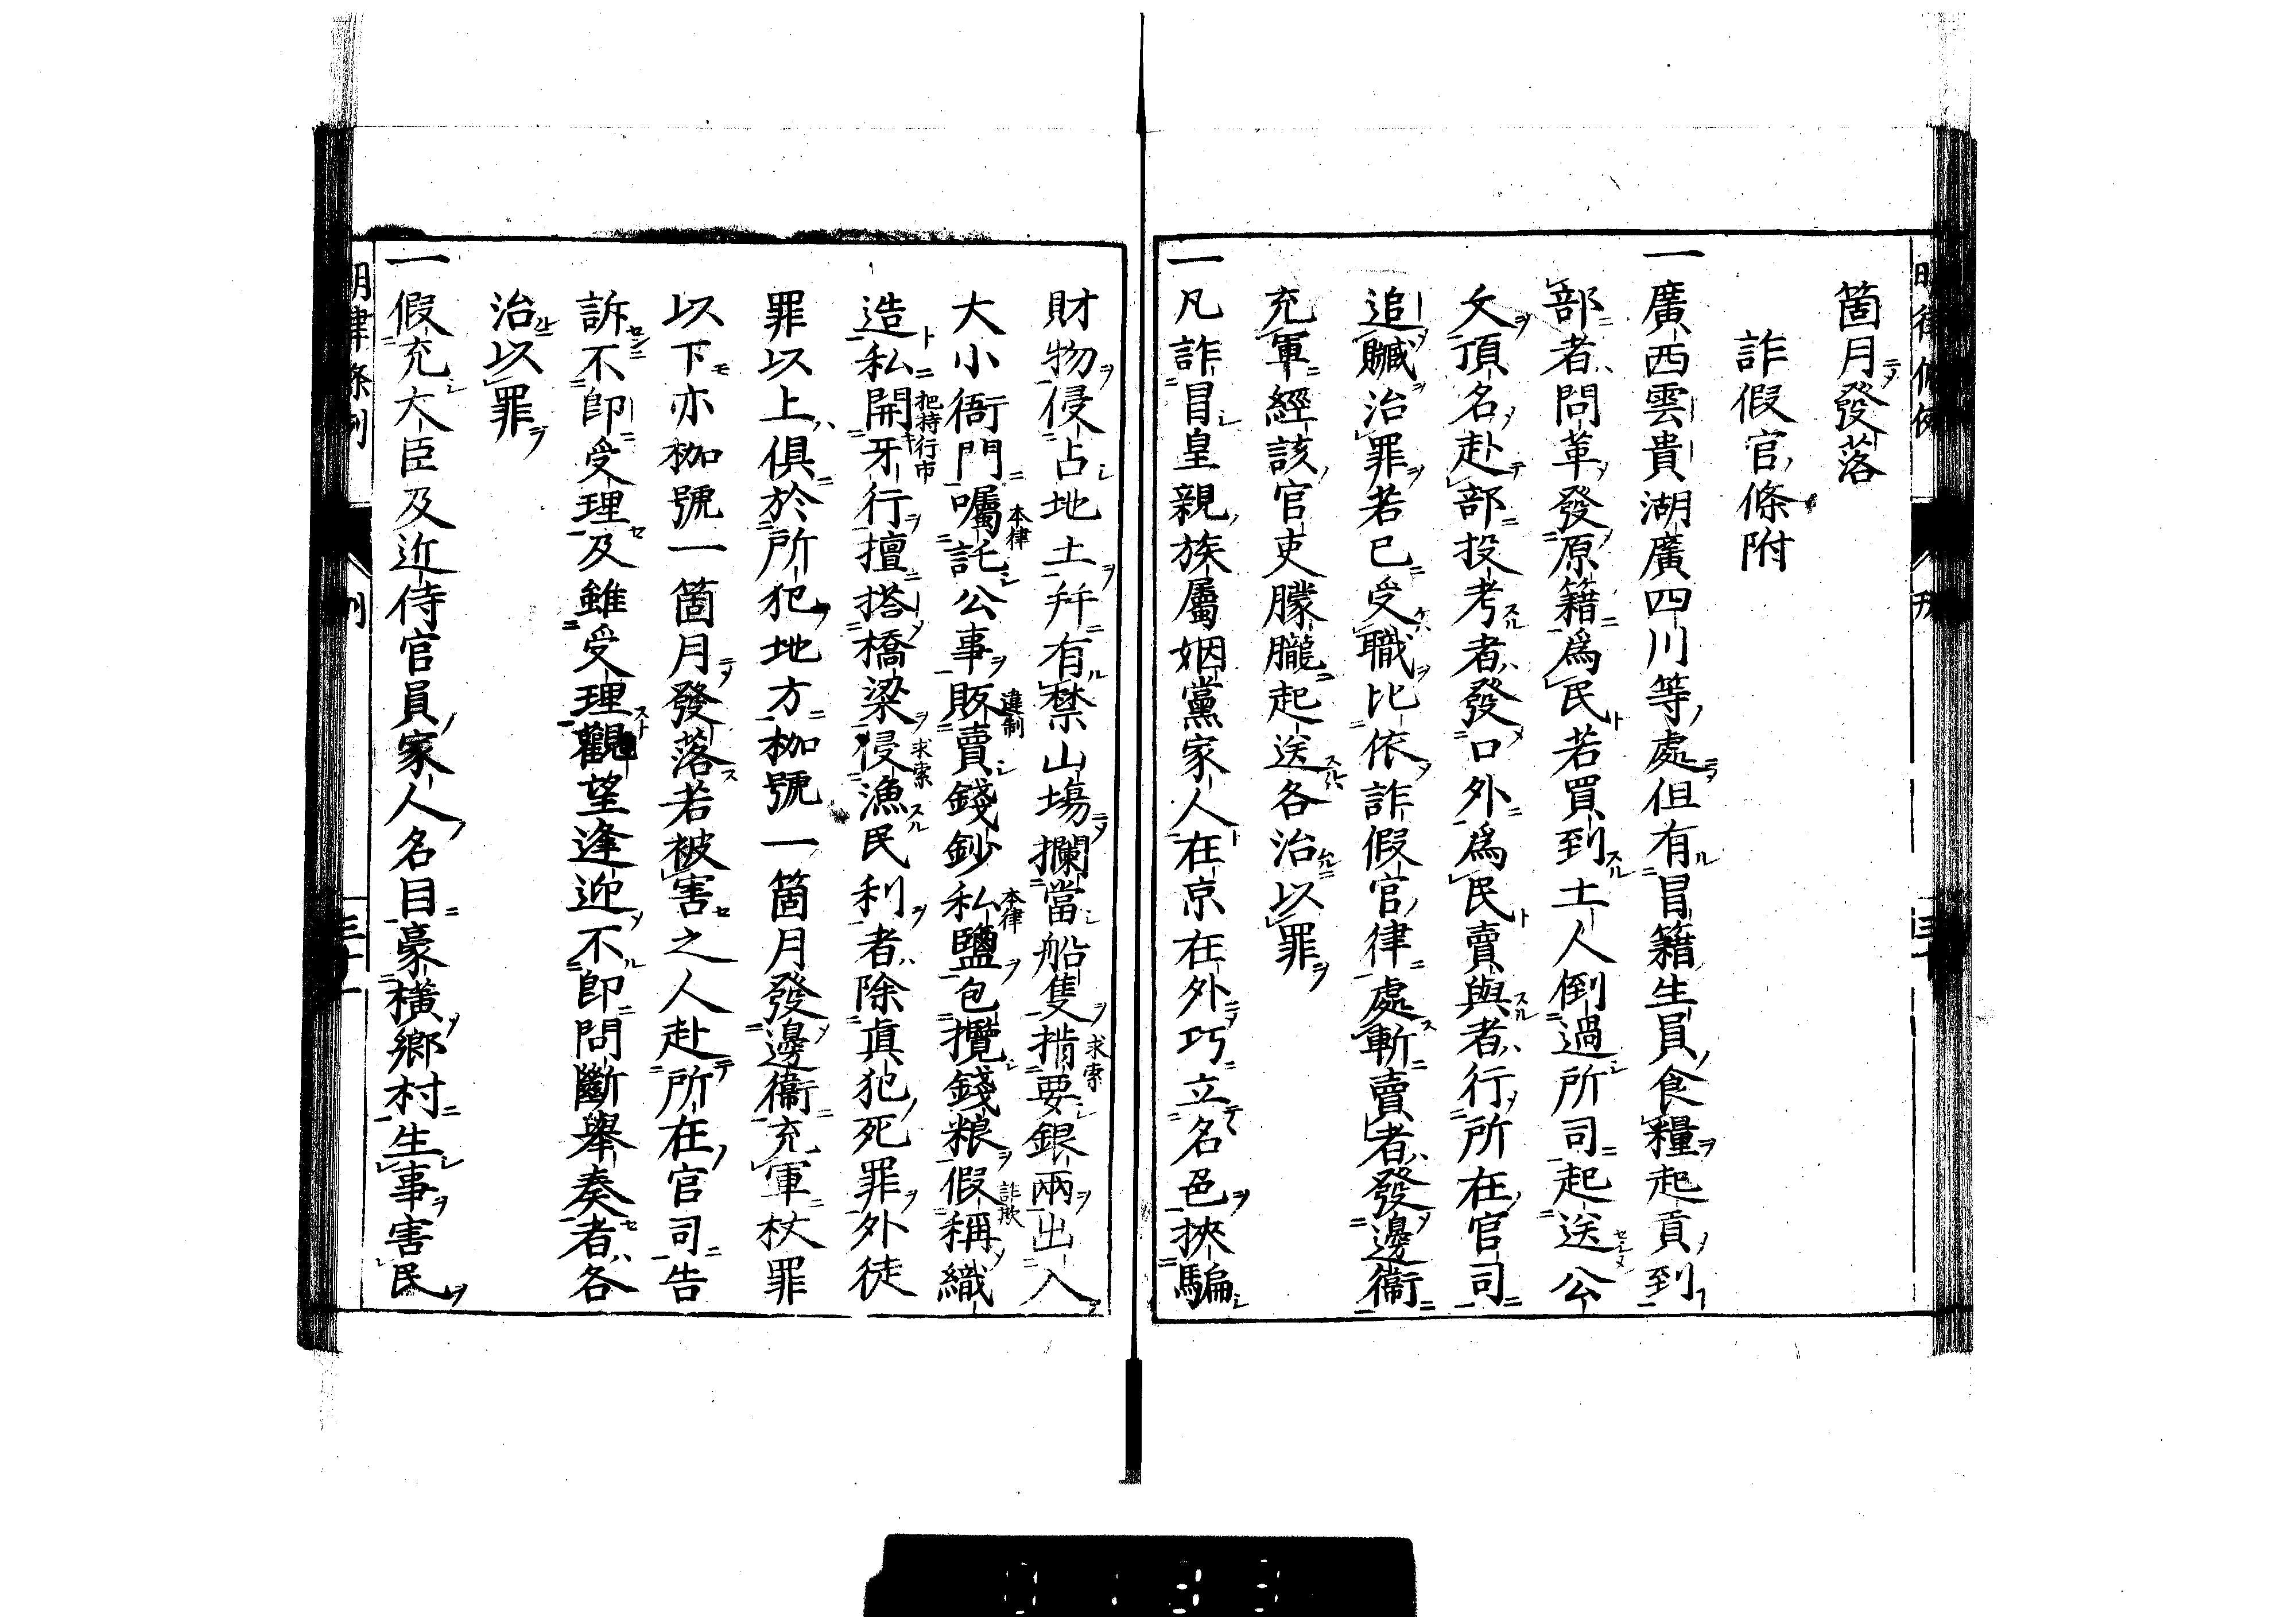 箇月發落
詐假官條附
一廣西雲貴湖廣四川等處但有冒籍生員食糧起貢到
部者問革發原籍爲民若買到土人倒過所司起送公
文頂名赴部投考者發口外爲民賣與者行所在官司
追贓治罪若已受職比依詐假官律處斬賣者發邊衞
充軍經該官吏朦朧起送各治以罪
一凡詐冒皇親族屬姻黨家人在京在外巧立名色挾騙
財物侵占地土幷有禁山塲攔當船隻揹要銀兩出入
大小衙門囑託公事販賣錢鈔私鹽包攬錢粮假稱織
造私開牙行擅搭橋梁侵漁民利者除眞犯死罪外徒
罪以上俱於所犯地方枷號一箇月發邊衞充軍杖罪
以下亦枷號一箇月發落若被害之人赴所在官司告
訴不卽受理及雖受理觀望逢迎不卽問斷舉奏者各
治以罪
一假充大臣及近侍官員家人名目豪橫鄉村生事害民
求索
本律
違制
本律
詐欺
把持行市
求索
明律條例